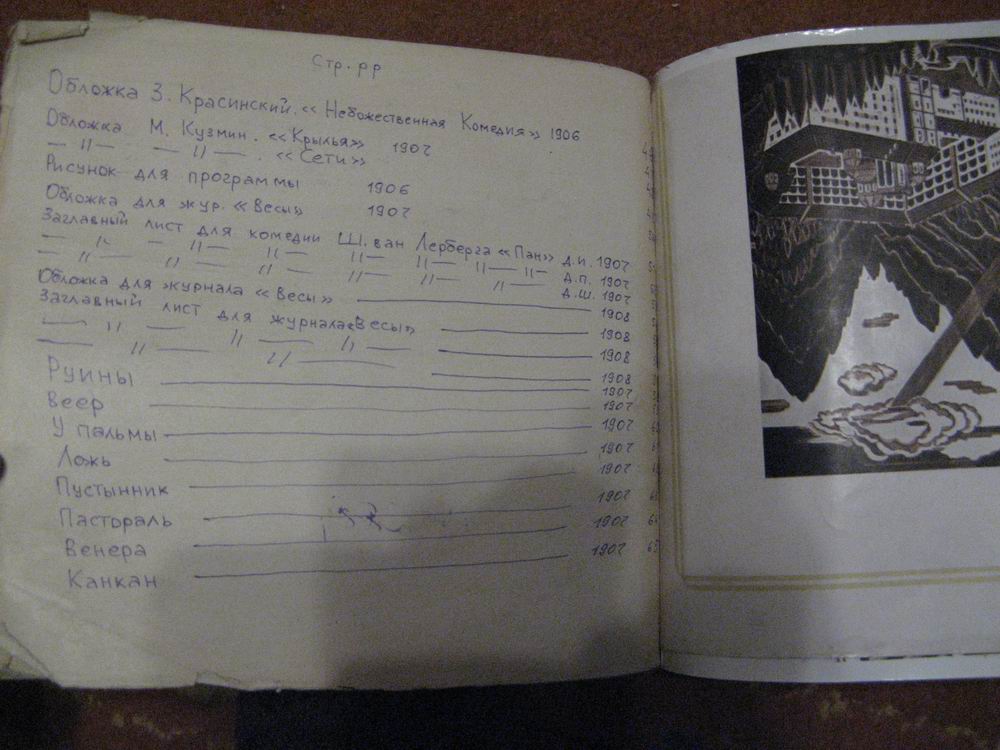 Стр. рр
Обложка З. Красинский. «Небожественная Комедия» 1906
Обложка М. Кузмин. «Крылья» 1907
— // — — // — . «Сети»
Рисунок для программы 1906
Обложка для жур. «Весы» 1907
Заглавный лист для комедии Ш. ван Лерберга «Пан» д.и. 1907
— // — — // — // — // — // — // — // — д.п. 1907
д.ш. 1907
Обложка для журнала «Весы» 1908
Заглавный лист для журнала «Весы» 1908
— // — // — // — 1908
— // — // — 1908
Руины 1907
Веер 1907
У пальмы 1907
Ложь 1907
Пустынник 1907
Пастораль 1907
Венера 1907
Канкан 1907